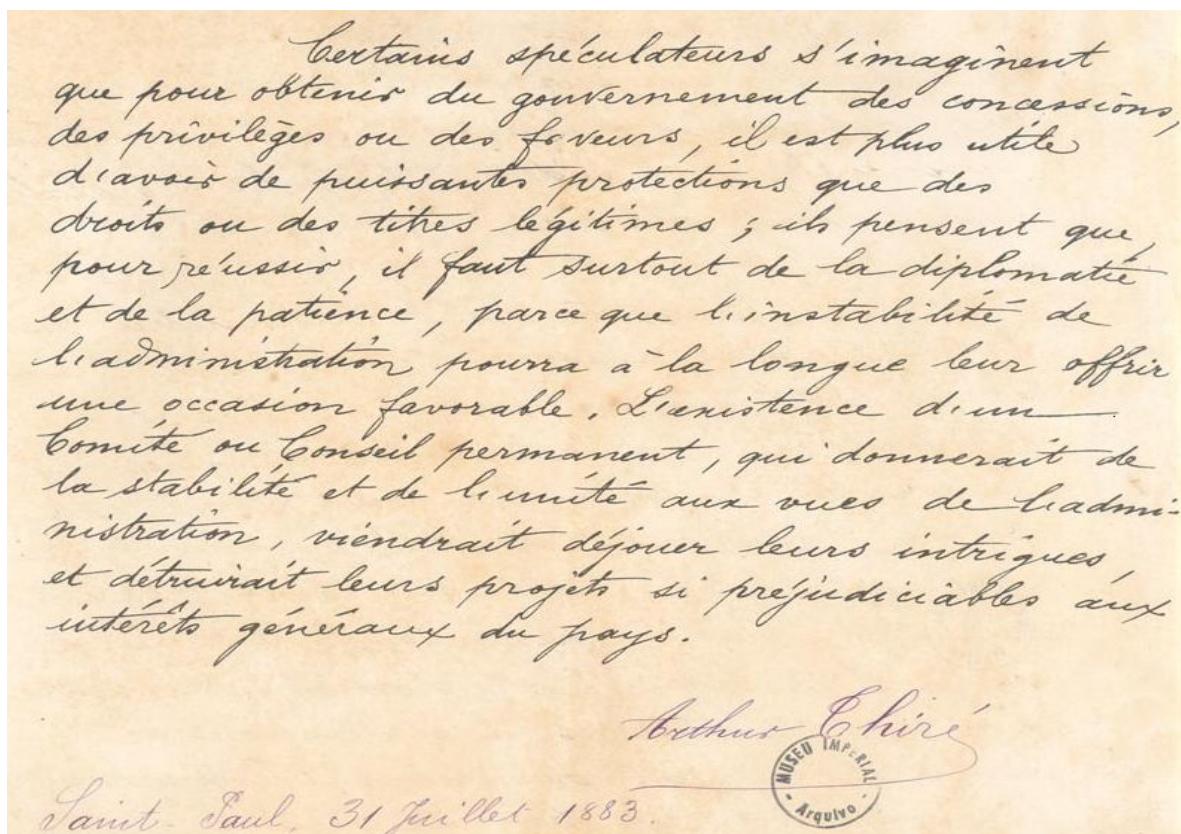 Certains spéculateurs s'imaginent
que pour obtenir du gouvernement des concessions,
des privilèges ou des faveurs, il est plus utile
d'avoir de puissantes protections que des
droits ou des titres légitimes ; ils pensent que,
pour réussir, il faut surtout de la diplomatie
et de la patience, parce que l'instabilité de
l'administration pourra à la longue leur offrir
une occasion favorable. L'existence d'un
Comité ou Conseil permanent, qui donnerait de
la stabilité et de l'unité aux vues de l'admi-
nistration, viendrait déjouer leurs intrigues,
et détruirait leurs projets si préjudiciables aux
intérêts généraux du pays.
Arthur Thiré
MUSEU IMPERIAL
- Arquivo -
Saint-Paul, 31 Juillet 1883.